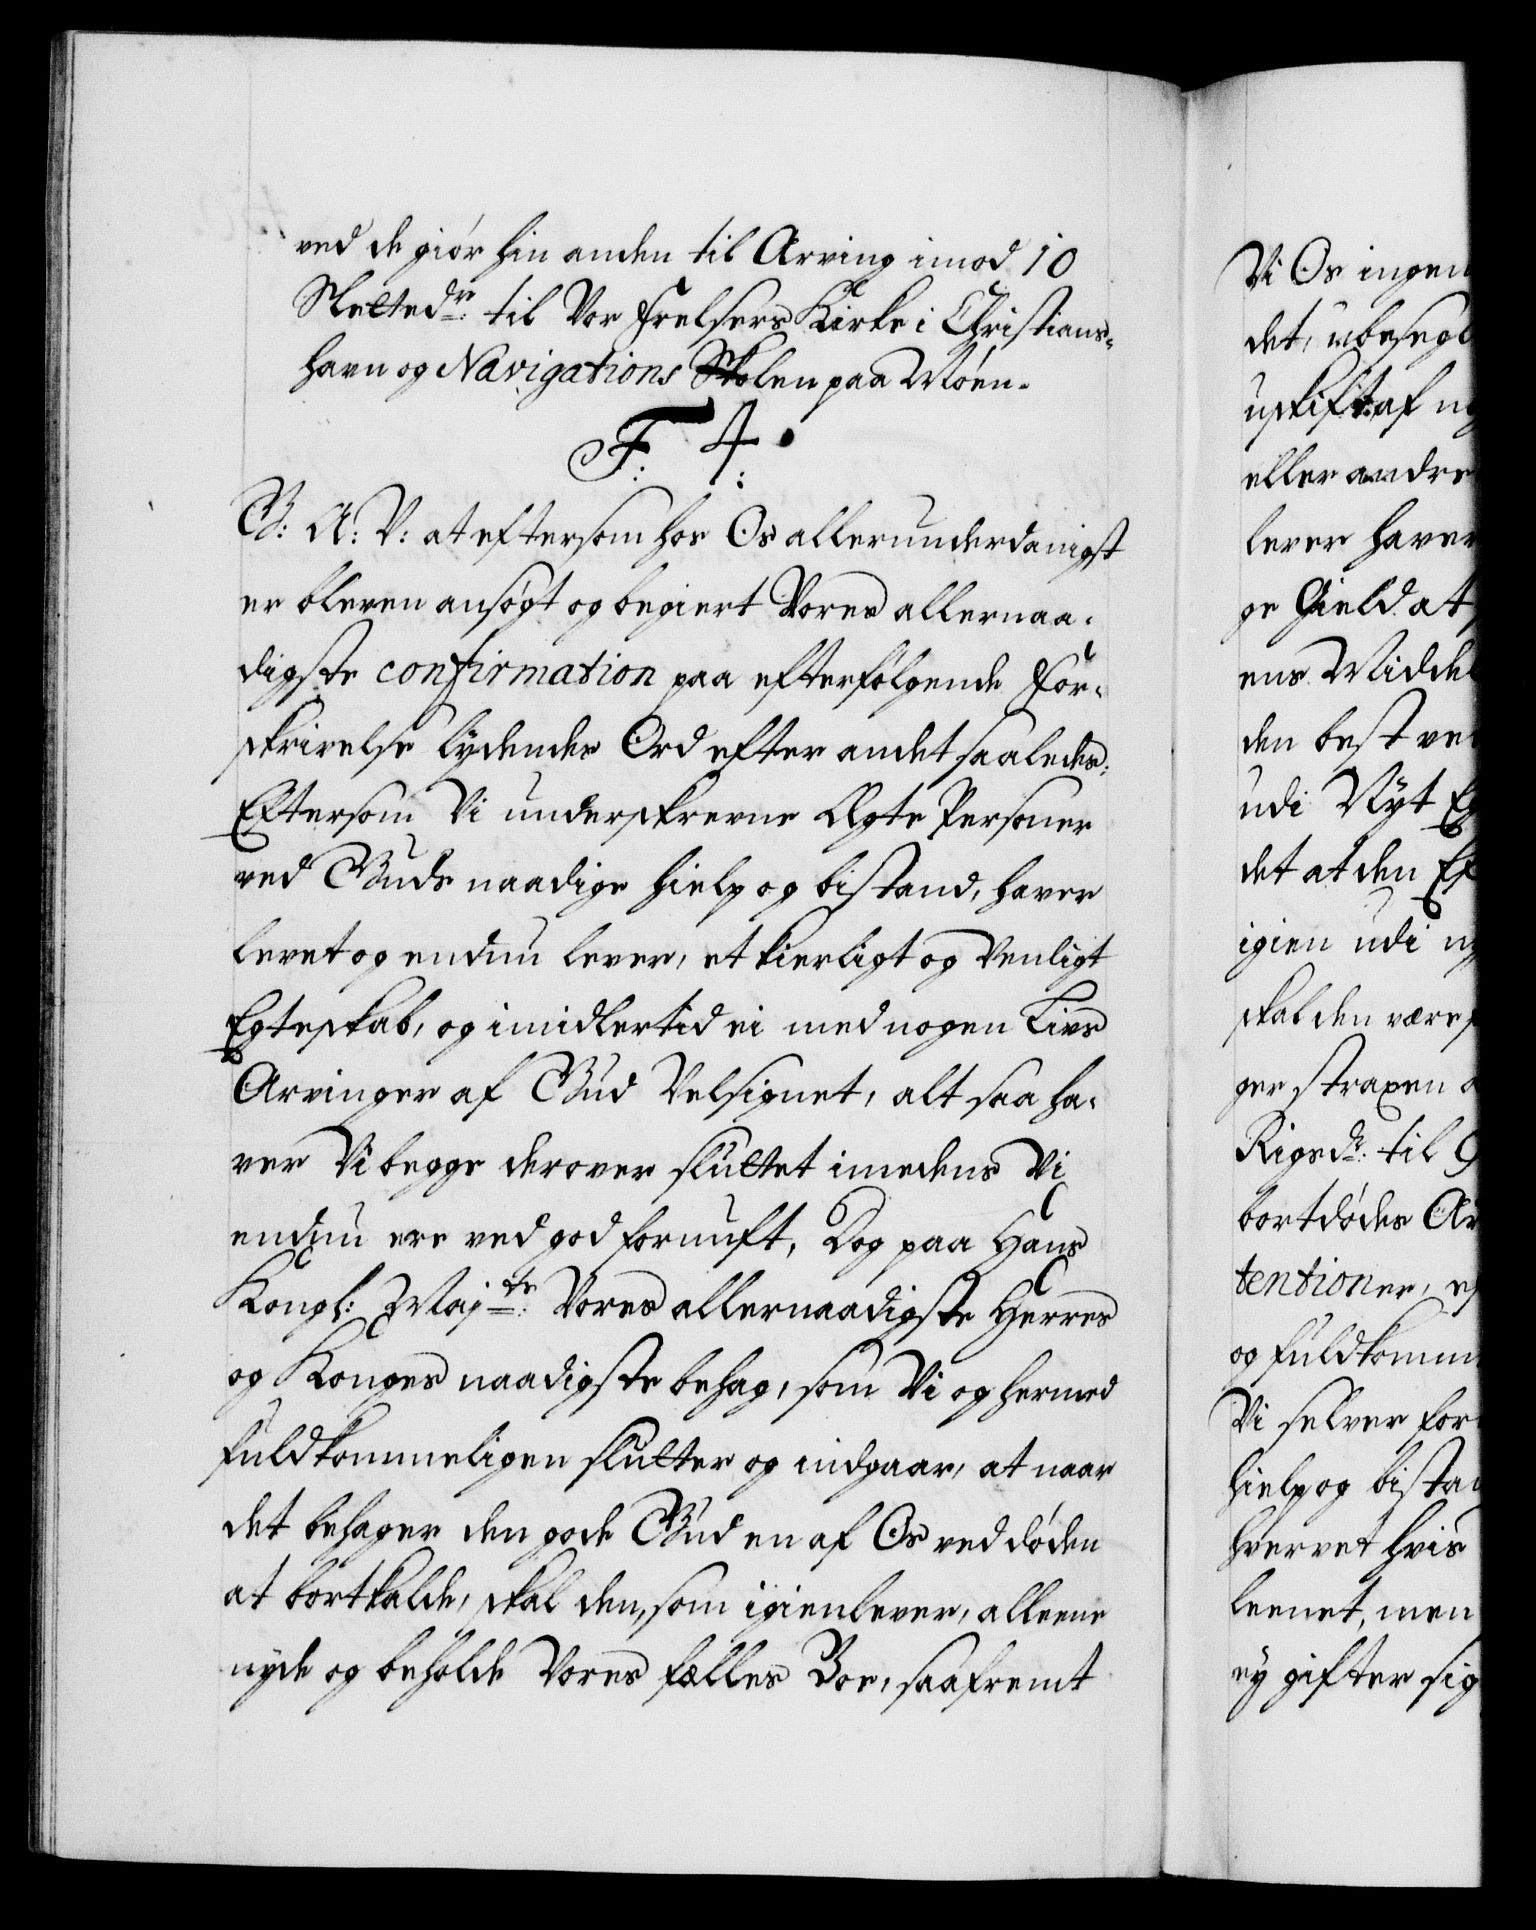 ved de giør hin anden til Arving imod 10
Slettedr: til Vor Frelsers Kirke i Christians-
havn og Navigations Skolen paa Møen.
F. 4.
G: A: V: at eftersom hos Os allerunderdanigst
er bleven ansøgt og begiert Vores allernaa-
digste confirmation paa efterfølgende For-
skrivelse lydendes Ord efter andet saaledes:
Eftersom Vi underskrevne Ægte Personer
ved Guds naadige hielp og bistand, haver
levet og endnu lever, et kierligt og Venligt
Egteskab, og imidlertid ei med nogen Livs
Arvinger af Gud Velsignet, alt saa ha-
ver Vi begge derover sluttet imedens Vi
endnu ere ved god fornuft, Dog paa Hans
Kongl: Majts: Vores allernaadigste Herres
og Konges naadigste behag, som Vi og hermed
fuldkommeligen slutter og indgaar, at naar
det behager den gode Gud en af Os ved døden
at bortkalde, skal den, som igienlever, alleene
nyde og beholde Vores fælles Boe, saafremt
Vi Os ingen
det, ubesegl
uskift af
eller andre
lever haver
ge Gield at
ens Middel
den best ve
udi Nyt Eg
det at den Ef
igien udi
skal den være
ger straxen
Rigsdr: til
bortdødes Ar
tentioner,
og fuldkomm
Vi selver for
hielp og bistan
hvervet hvis
leenet, men
ey gifter sig